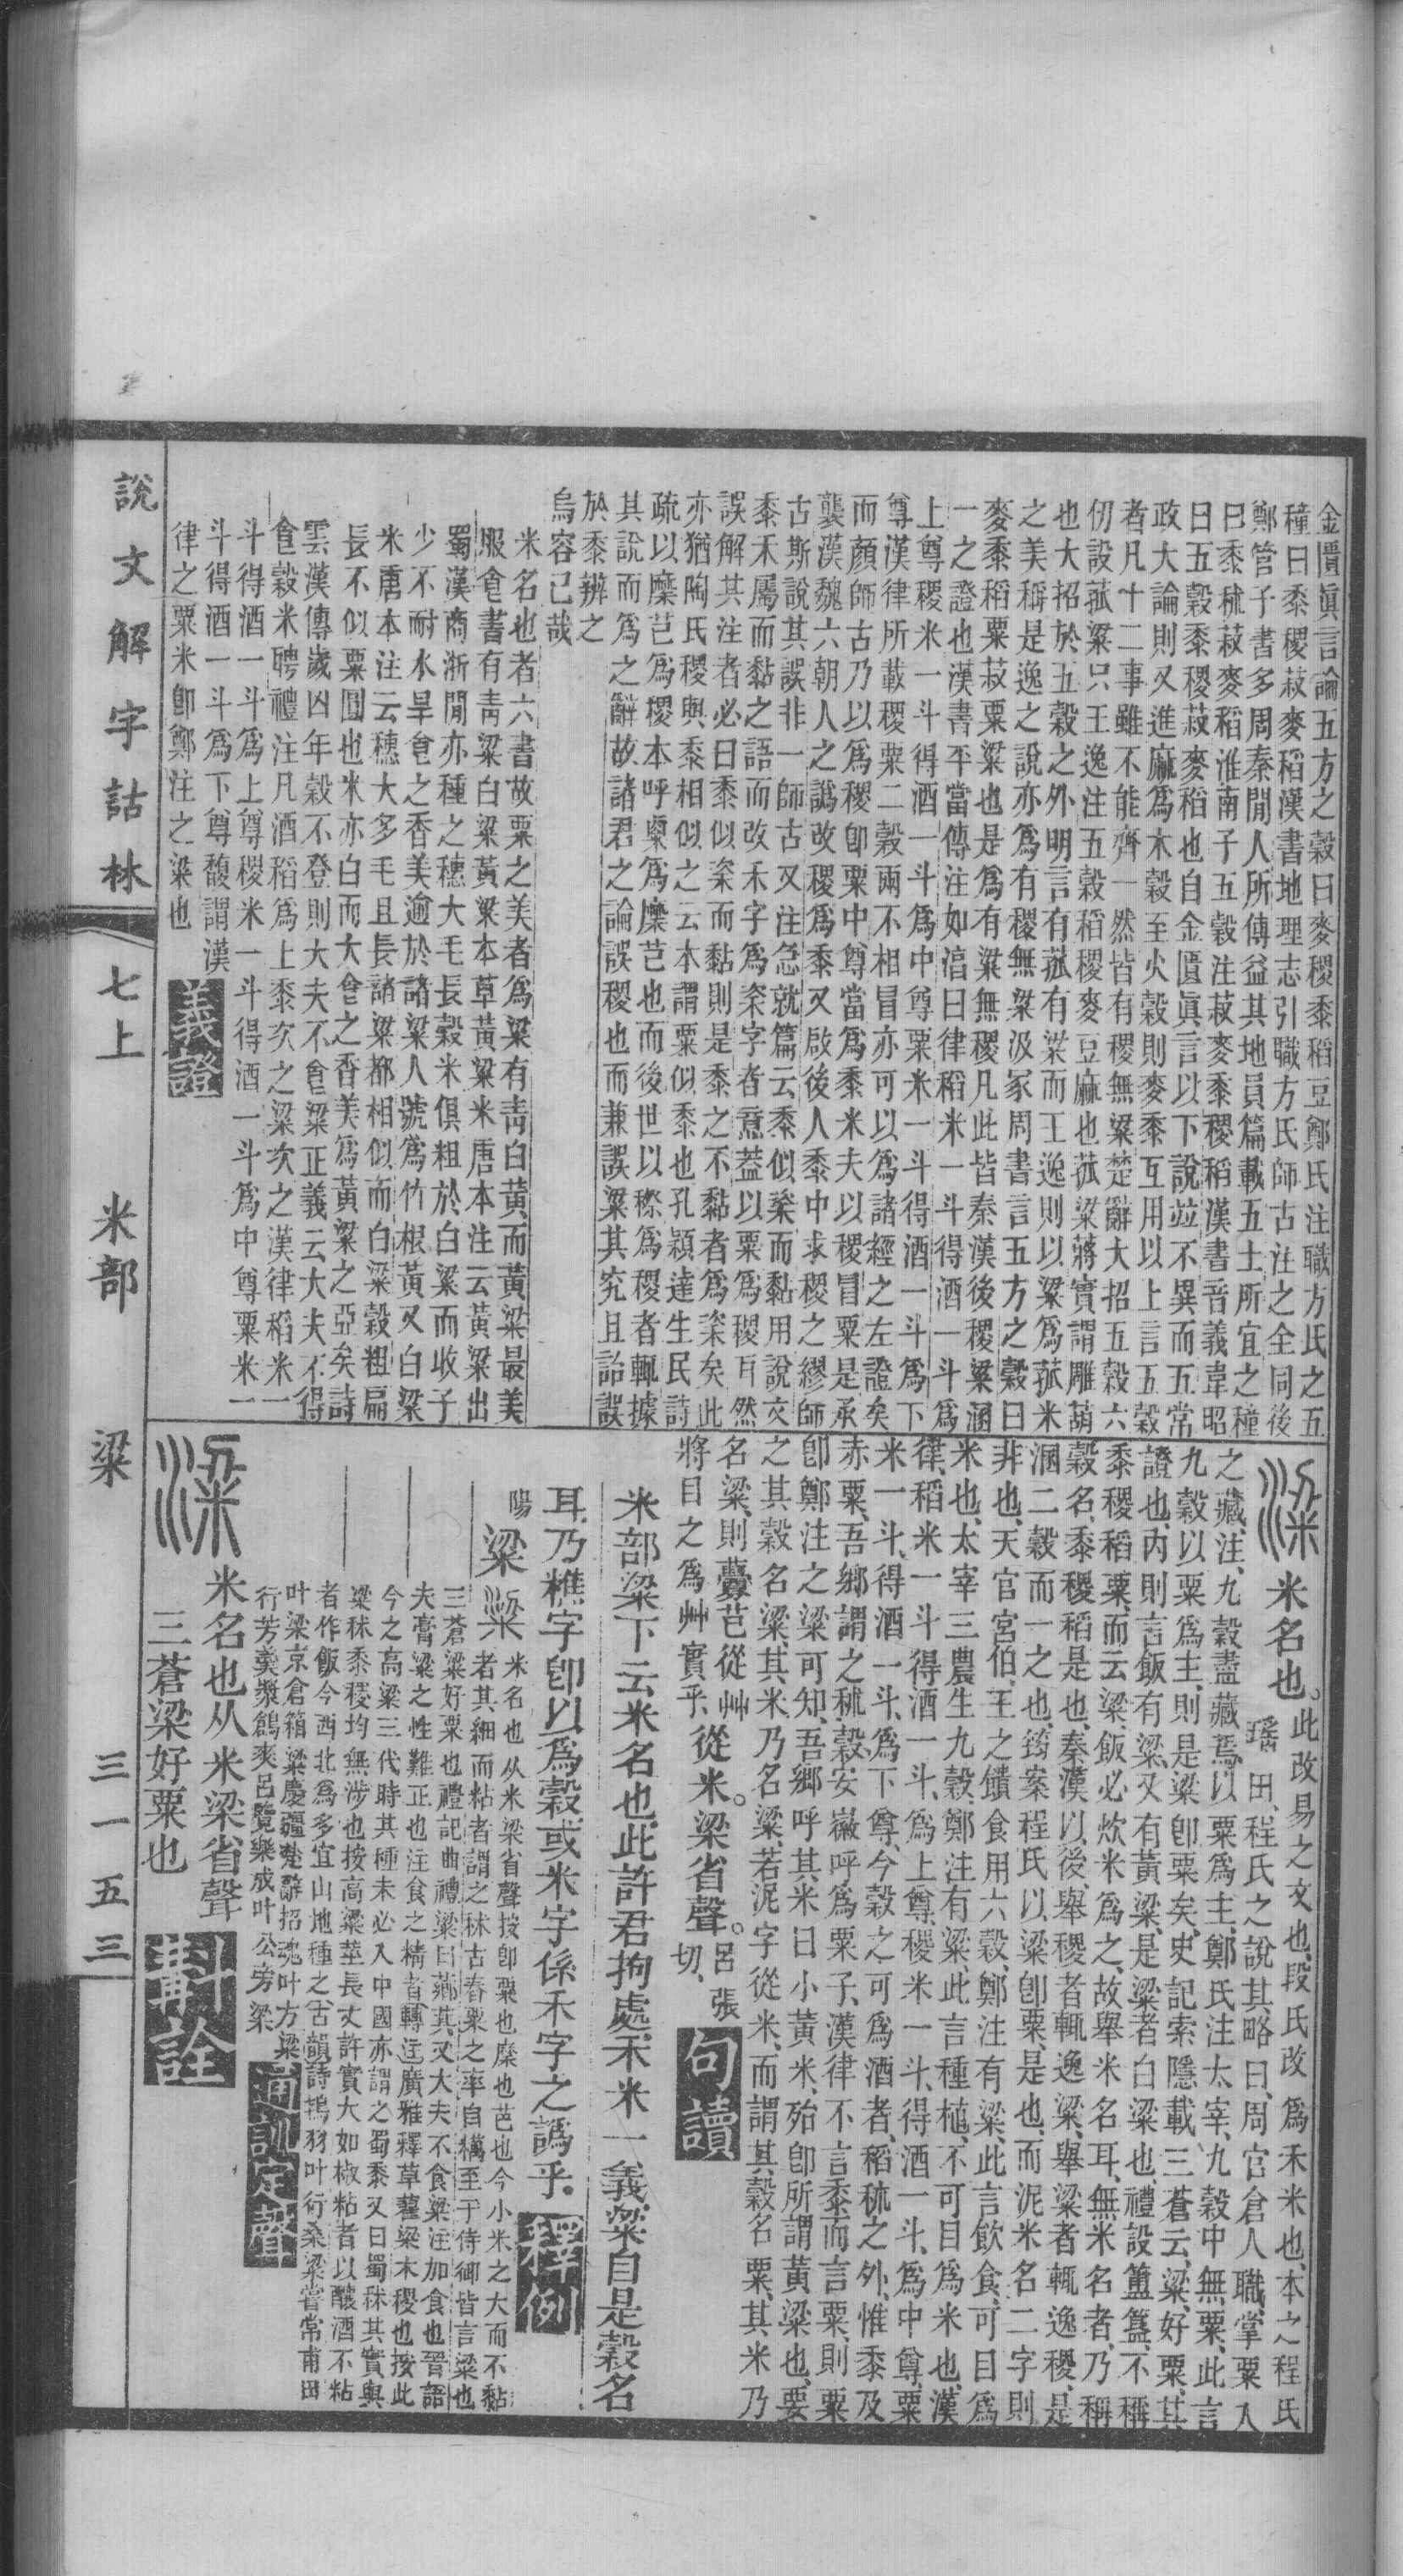 金匱眞言論五方之穀曰麥稷黍稻豆鄭氏注職方氏之五
種曰黍稷菽麥稻漢書地理志引職方氏師古注之全同後
鄭管子書多周秦閒人所傳益其地員篇載五土所宜之種
曰黍秫菽麥稻淮南子五穀注菽麥黍稷稻漢書音義韋昭
曰五穀黍稷菽麥稻也自金匱眞言以下說竝不異而五常
政大論則又進麻爲木穀至火穀則麥黍互用以上言五穀
者凡十二事雖不能齊一然皆有稷無粱楚辭大招五穀六
仞設菰粱只王逸注五穀稻稷麥豆麻也菰粱蔣實謂雕葫
也大招於五穀之外明言有菰有粱而王逸則以粱爲菰米
之美稱是逸之說亦爲有稷無粱汲冢周書言五方之穀曰
麥黍稻粟菽粟粱也是爲有粱無稷凡此皆秦漢後稷粱溷
一之證也漢書平當傳注如淳曰律稻米一斗得酒一斗爲
上尊稷米一斗得酒一斗爲中尊粟米一斗得酒一斗爲下
尊漢律所載稷粟二穀兩不相冒亦可以爲諸經之左證矣
而顏師古乃以爲稷卽粟中尊當爲黍米夫以稷冒粟是承
襲漢魏六朝人之譌改稷爲黍又啟後人黍中求稷之繆師
古斯說其誤非一師古又注急就篇云黍似粢而黏用說文
黍禾屬而黏之語而改禾字爲粢字者意蓋以粟爲稷耳然
誤解其注者必曰黍似粢而黏則是黍之不黏者爲粢矣此
亦猶陶氏稷與黍相似之云本謂粟似黍也孔穎達生民詩
疏以穈芑爲稷本呼粟爲穈芑也而後世以穄爲稷者輒據
其說而爲之辭故諸君之論誤稷也而兼誤粱其究且詒誤
於黍辨之
烏容已哉
米名也者六書故粟之美者爲粱有靑白黃而黃粱最美
服食書有靑粱白粱黃粱本草黃粱米唐本注云黃粱出
蜀漢商浙閒亦種之穗大毛長穀米俱粗於白粱而收子
少不耐水旱食之香美逾於諸粱人號爲竹根黃又白粱
米唐本注云穗大多毛且長諸粱都相似而白粱穀粗扁
長不似粟圓也米亦白而大食之香美爲黃粱之亞矣詩
雲漢傳歲凶年穀不登則大夫不食粱正義云大夫不得
食穀米聘禮注凡酒稻爲上黍次之粱次之漢律稻米一
斗得酒一斗爲上尊稷米一斗得酒一斗爲中尊粟米一
斗得酒一斗爲下尊馥謂漢
律之粟米卽鄭注之粱也
義證
米名也。此改易之文也、段氏改爲禾米也、本之程氏
瑤田、程氏之說、其略曰、周官倉人職、掌粟入
之藏、注、九穀盡藏焉、以粟爲主、鄭氏注太宰、九穀中無粟、此言
九穀以粟爲主、則是粱卽粟矣、史記索隱載三蒼云、粱、好粟、其
證也、內則言飯有粱、又有黃粱、是粱者白粱也、禮設簠簋、不稱
黍稷稻粟、而云粱、飯必炊米爲之、故舉米名耳、無米名者、乃稱
穀名、黍稷稻是也、秦漢以後、舉稷者輒逸粱、舉粱者輒逸稷、是
溷二穀而一之也、筠案程氏以粱卽粟、是也、而泥米名二字則
非也、天官宮伯、王之饋食用六穀、鄭注有粱、此言飲食、可目爲
米也、太宰三農生九穀、鄭注有粱、此言種植、不可目爲米也、漢
律、稻米一斗得酒一斗、爲上尊、稷米一斗、得酒一斗、爲中尊、粟
米一斗、得酒一斗、爲下尊、今穀之可爲酒者、稻秫之外、惟黍及
赤粟、吾鄉謂之秫穀、安嶶呼爲粟子、漢律不言黍而言粟、則粟
卽鄭注之粱可知、吾鄉呼其米曰小黃米、殆卽所謂黃粱也、要
之其穀名粱、其米乃名粱、若泥字從米、而謂其穀名粟、其米乃
名粱、則虋芑從艸
將目之爲艸實乎、
從米。梁省聲。呂張切、
句讀
米部粱下云米名也、此許君拘處、禾米一義、粱自是穀名
耳、乃樵字卽以爲穀、或米字係禾字之譌乎、
釋例
陽
粱
米名也从米梁省聲按卽粟也穈也芑也今小米之大而不黏
者其細而粘者謂之秫古舂粟之率自糲至于侍御皆言粱也
三蒼粱好粟也禮記曲禮粱曰薌萁又大夫不食粱注加食也晉語
夫膏粱之性難正也注食之精者轉注廣雅釋草藋粱木稷也按此
今之高粱三代時其種未必入中國亦謂之蜀黍又曰蜀秫其實與
粱秫黍稷均無涉也按高粱莖長丈許實大如椒粘者以釀酒不粘
者作飯今西北爲多宜山地種之古韻詩鴇羽叶行桑粱嘗常甫田
叶梁京倉箱粱慶疆楚辭招魂叶方粱
行芳羹漿鶬爽呂覽樂成叶公旁粱
通訓定聲
米名也从米梁省聲
三蒼粱好粟也
斠詮
說文解字詁林
七上
米部
粱
三一五三